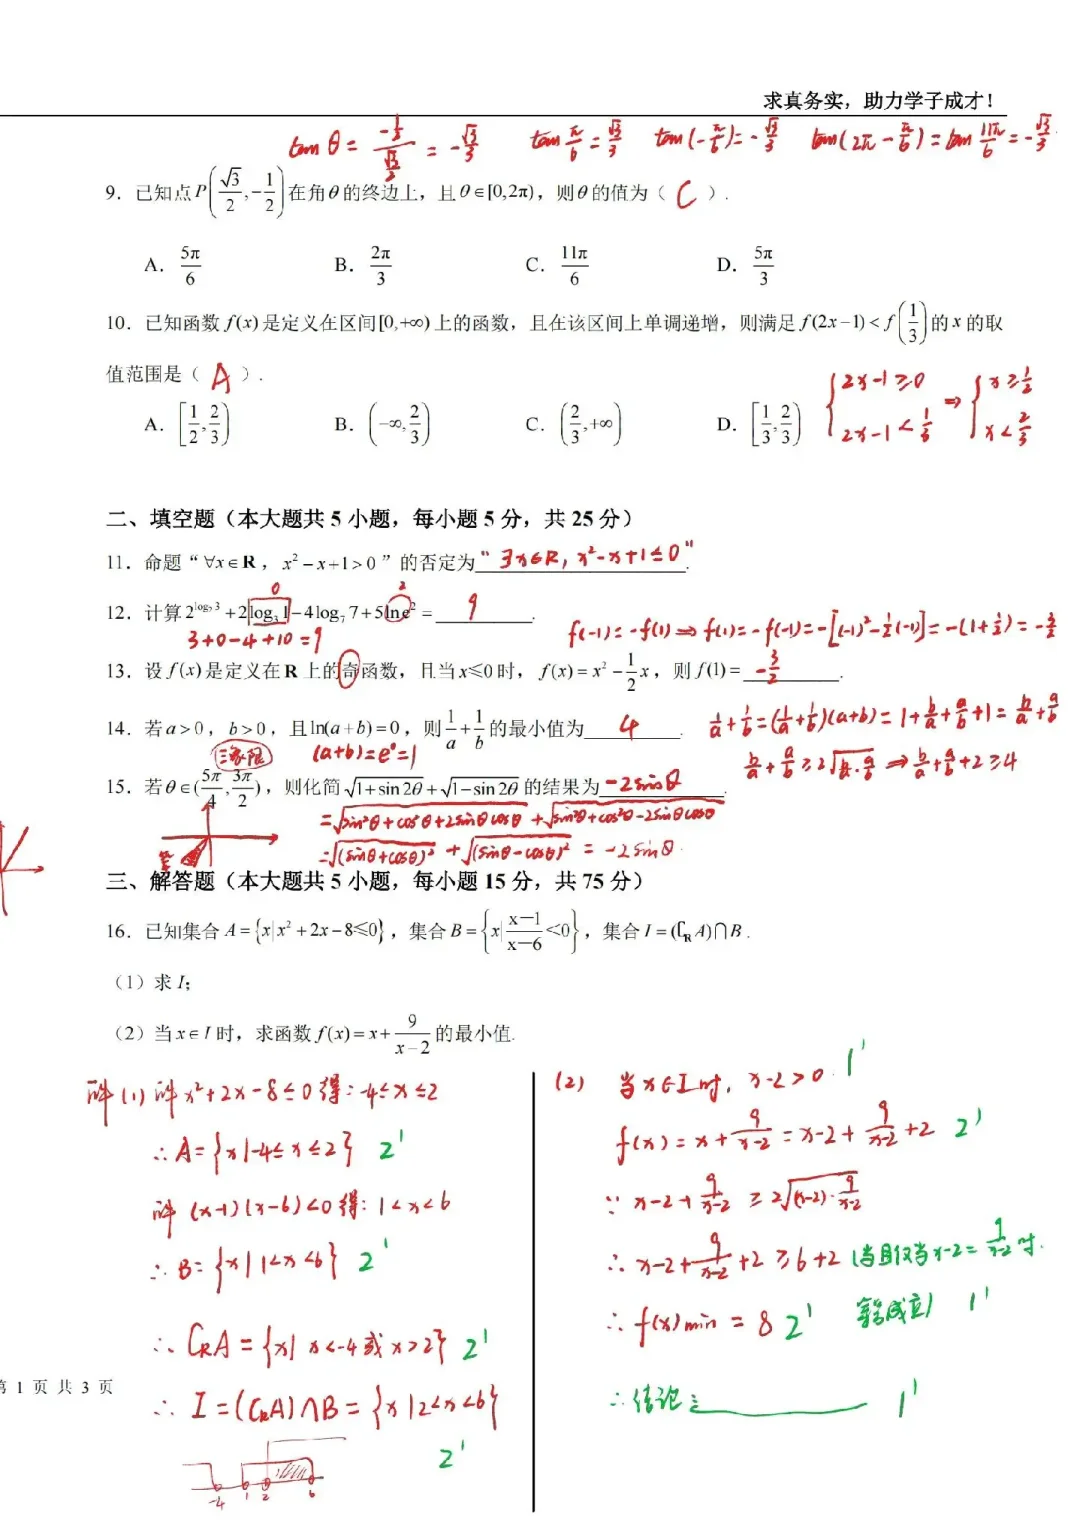 求真务实，助力学子成才！
tan θ = (-1/2)/(√3/2) = -√3/3  tan π/6 = √3/3  tan(-π/6) = -√3/3  tan(2π - π/6) = tan 11π/6 = -√3/3
9．已知点P(√3/2, -1/2)在角θ的终边上，且θ∈[0,2π)，则θ的值为（ C ）.
A．5π/6  B．2π/3  C．11π/6  D．5π/3
10．已知函数 f(x)是定义在区间[0,+∞)上的函数，且在该区间上单调递增，则满足f(2x-1)<f(1/3)的x的取
值范围是（ A ）.
{2x-1≥0 2x-1<1/3 ⇒ {x≥1/2 x<2/3
A．[1/2, 2/3)  B．(-∞, 2/3)  C．(2/3, +∞)  D．[1/3, 2/3)
二、填空题（本大题共 5 小题，每小题 5 分，共 25 分）
11．命题“∀x∈R，x²-x+1>0”的否定为 "∃x∈R, x²-x+1≤0".
0  2
12．计算2^(log₂3)+2log₃1-4log₇7+5lne²= 9.
3+0-4+10=9
f(-1)=-f(1)⇒f(1)=-f(-1)=-[(-1)²-1/2(-1)]=-(1+1/2)=-3/2
13．设f(x)是定义在R上的奇函数，且当x≤0时，f(x)=x²-1/2x，则f(1)= -3/2.
14．若a>0，b>0，且ln(a+b)=0，则1/a+1/b的最小值为 4
1/a+1/b=(1/a+1/b)(a+b)=1+b/a+a/b+1=b/a+a/b
三象限  (a+b)=e⁰=1
b/a+a/b≥2√(b/a·a/b)⇒b/a+a/b+2≥4
15．若θ∈(5π/4, 3π/2)，则化简√(1+sin2θ)+√(1-sin2θ)的结果为 -2sinθ.
=√(sin²θ+cos²θ+2sinθcosθ)+√(sin²θ+cos²θ-2sinθcosθ)
=√(sinθ+cosθ)²+√(sinθ-cosθ)²=-2sinθ.
三、解答题（本大题共 5 小题，每小题 15 分，共 75 分）
16．已知集合A={x|x²+2x-8≤0}，集合B={x|(x-1)/(x-6)<0}，集合I=(∁RA)∩B.
（1）求I;
（2）当x∈I时，求函数f(x)=x+9/(x-2)的最小值.
解(1) 解x²+2x-8≤0得: -4≤x≤2
∴A={x|-4≤x≤2} 2'
解 (x-1)(x-6)<0得: 1<x<6
∴B={x|1<x<6} 2'
∴∁RA={x|x<-4或x>2} 2'
∴I=(∁RA)∩B={x|2<x<6}
2'
-4 1 2 6
(2) 当x∈I时, x-2>0 1'
f(x)=x+9/(x-2)=x-2+9/(x-2)+2 2'
∵x-2+9/(x-2)≥2√((x-2)·9/(x-2))
∴x-2+9/(x-2)+2≥6+2 (当且仅当x-2=9/(x-2)时.
等号成立) 1'
∴f(x)min=8 2'
∴结论: 1'
第 1 页 共 3 页